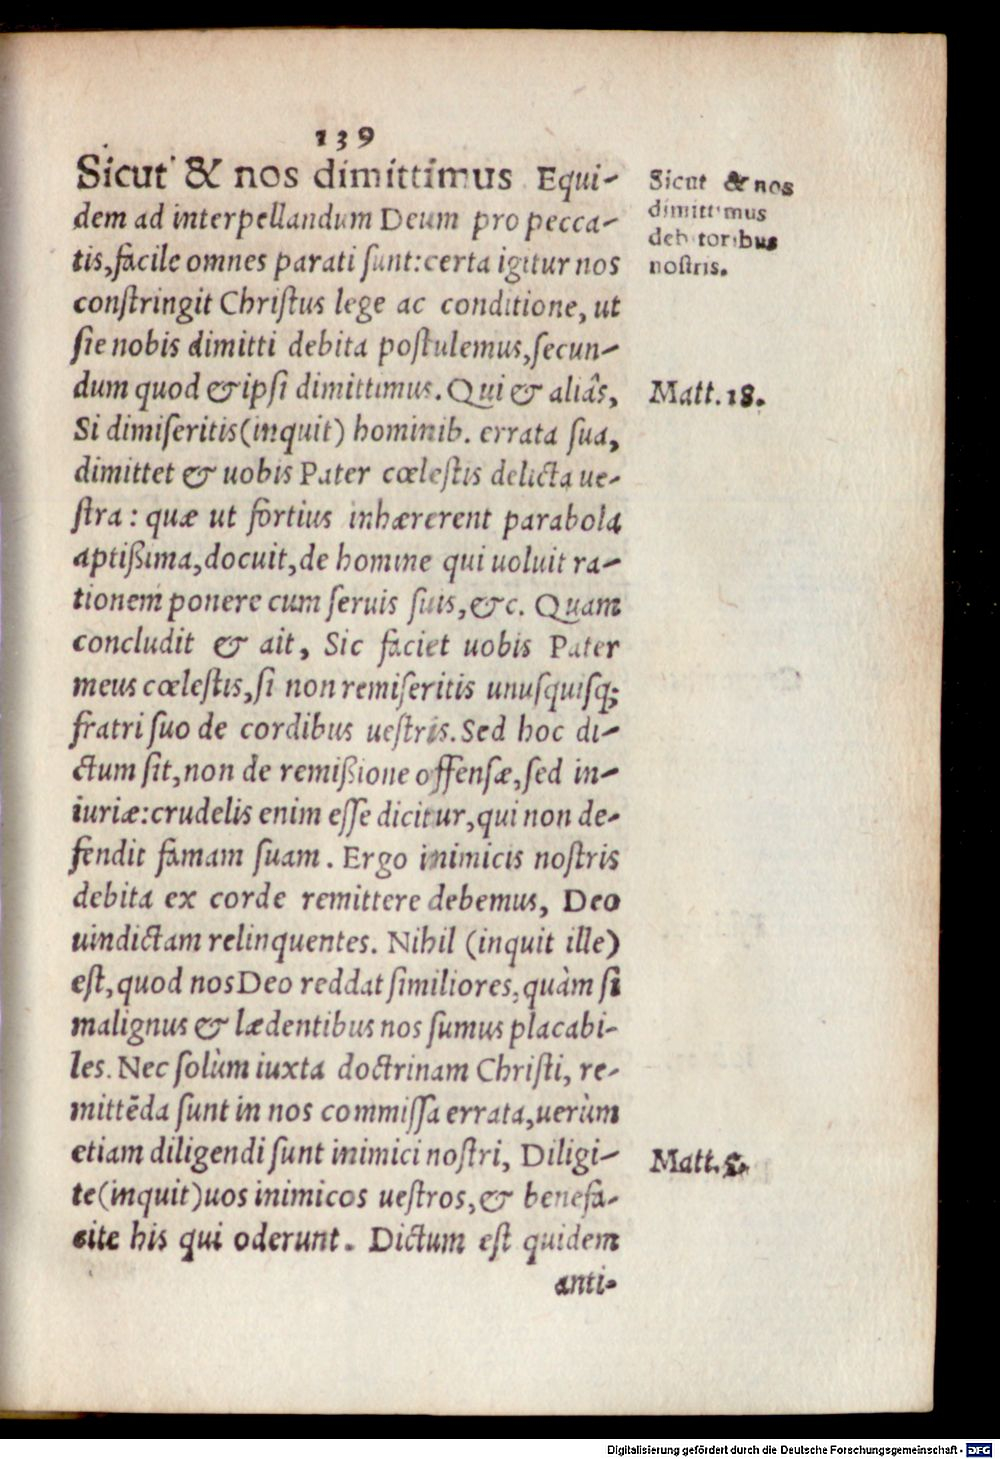 139
Sicut & nos dimittimus Equi-
dem ad interpellandum Deum pro pecca-
tis, facile omnes parati sunt: certa igitur nos
constringit Christus lege ac conditione, ut
sic nobis dimitti debita postulemus, secun-
dum quod & ipsi dimittimus. Qui & aliâs,
Si dimiseritis (inquit) hominib. errata sua,
dimittet & uobis Pater cœlestis delicta ue-
stra: quæ ut fortius inhærerent parabola
aptißima, docuit, de homine qui uoluit ra-
tionem ponere cum seruis suis, &c. Quam
concludit & ait, Sic faciet uobis Pater
meus cœlestis, si non remiseritis unusquisq;
fratri suo de cordibus uestris. Sed hoc di-
ctum sit, non de remißione offensæ, sed in-
iuriæ: crudelis enim esse dicitur, qui non de-
fendit famam suam. Ergo inimicis nostris
debita ex corde remittere debemus, Deo
uindictam relinquentes. Nihil (inquit ille)
est, quod nos Deo reddat similiores, quàm si
malignus & lædentibus nos sumus placabi-
les. Nec solùm iuxta doctrinam Christi, re-
mittēda sunt in nos commissa errata, uerùm
etiam diligendi sunt inimici nostri, Diligi-
te (inquit) uos inimicos uestros, & benefa-
cite his qui oderunt. Dictum est quidem
anti-
Sicut & nos
dimittimus
debitoribus
nostris.
Matt. 18.
Matt. 5.
Digitalisierung gefördert durch die Deutsche Forschungsgemeinschaft - DFG